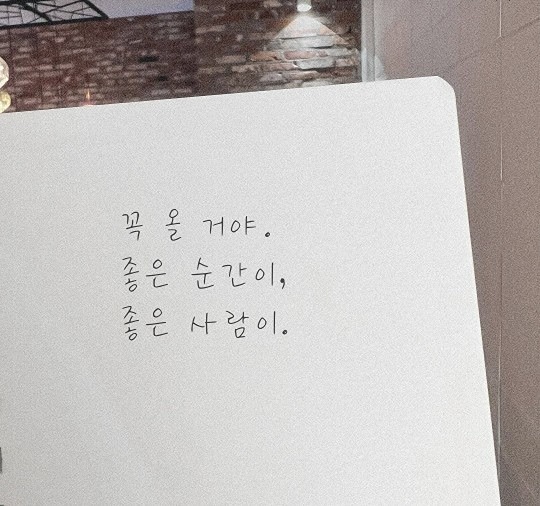 꼭 올 거야.
좋은 순간이,
좋은 사람이.